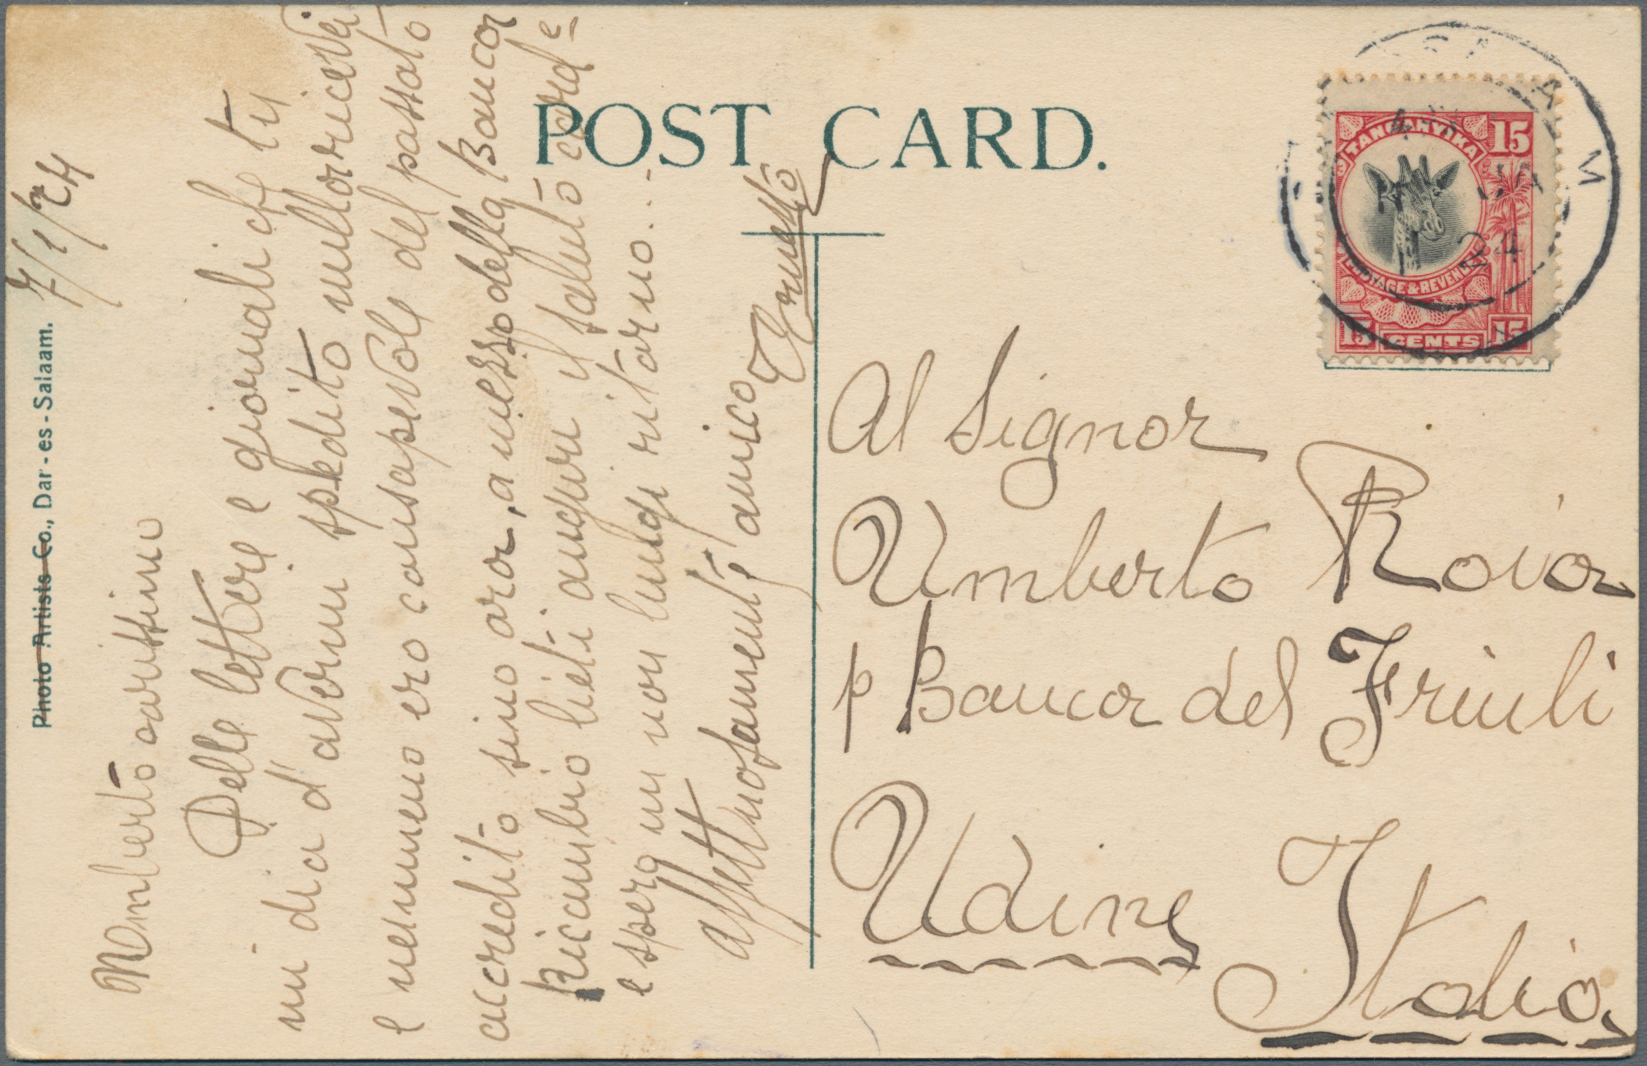 POST CARD.
Photo Artists Co., Dar-es-Salaam.
7/1/24
Umberto carissimo
Delle lettere e giornali che tu
mi dici d'avermi spedito nulla ricevei
e nemmeno ero consapevole del passato
accredito sino ora, a mezzo della Banca
Ricambio lieti auguri il saluto corde
e spero in non lungo ritorno..-
affettuosamente amico Ernesto
TANGANYIKA
15
POSTAGE & REVENUE
15 CENTS 15
SALAAM
JA
24
Al Signor
Umberto Roia
p Banca del Friuli
Udine
Italia